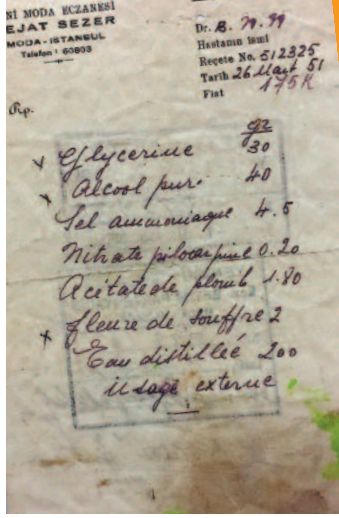 Nİ MODA ECZANESİ
EJAT SEZER
MODA - İSTANBUL
Telefon : 60803
Dr. B. N. 99
Hastanın ismi
Reçete No. 512325
Tarih 26 Mart 51
Fiat 175 K
Rp.
gr
Glycerine 30
Alcool pur. 40
Sel ammoniaque 4.5
Nitrate pilocarpine 0.20
Acétate de plomb 1.80
fleure de souffre 2
Eau distilleé 200
Usage externe